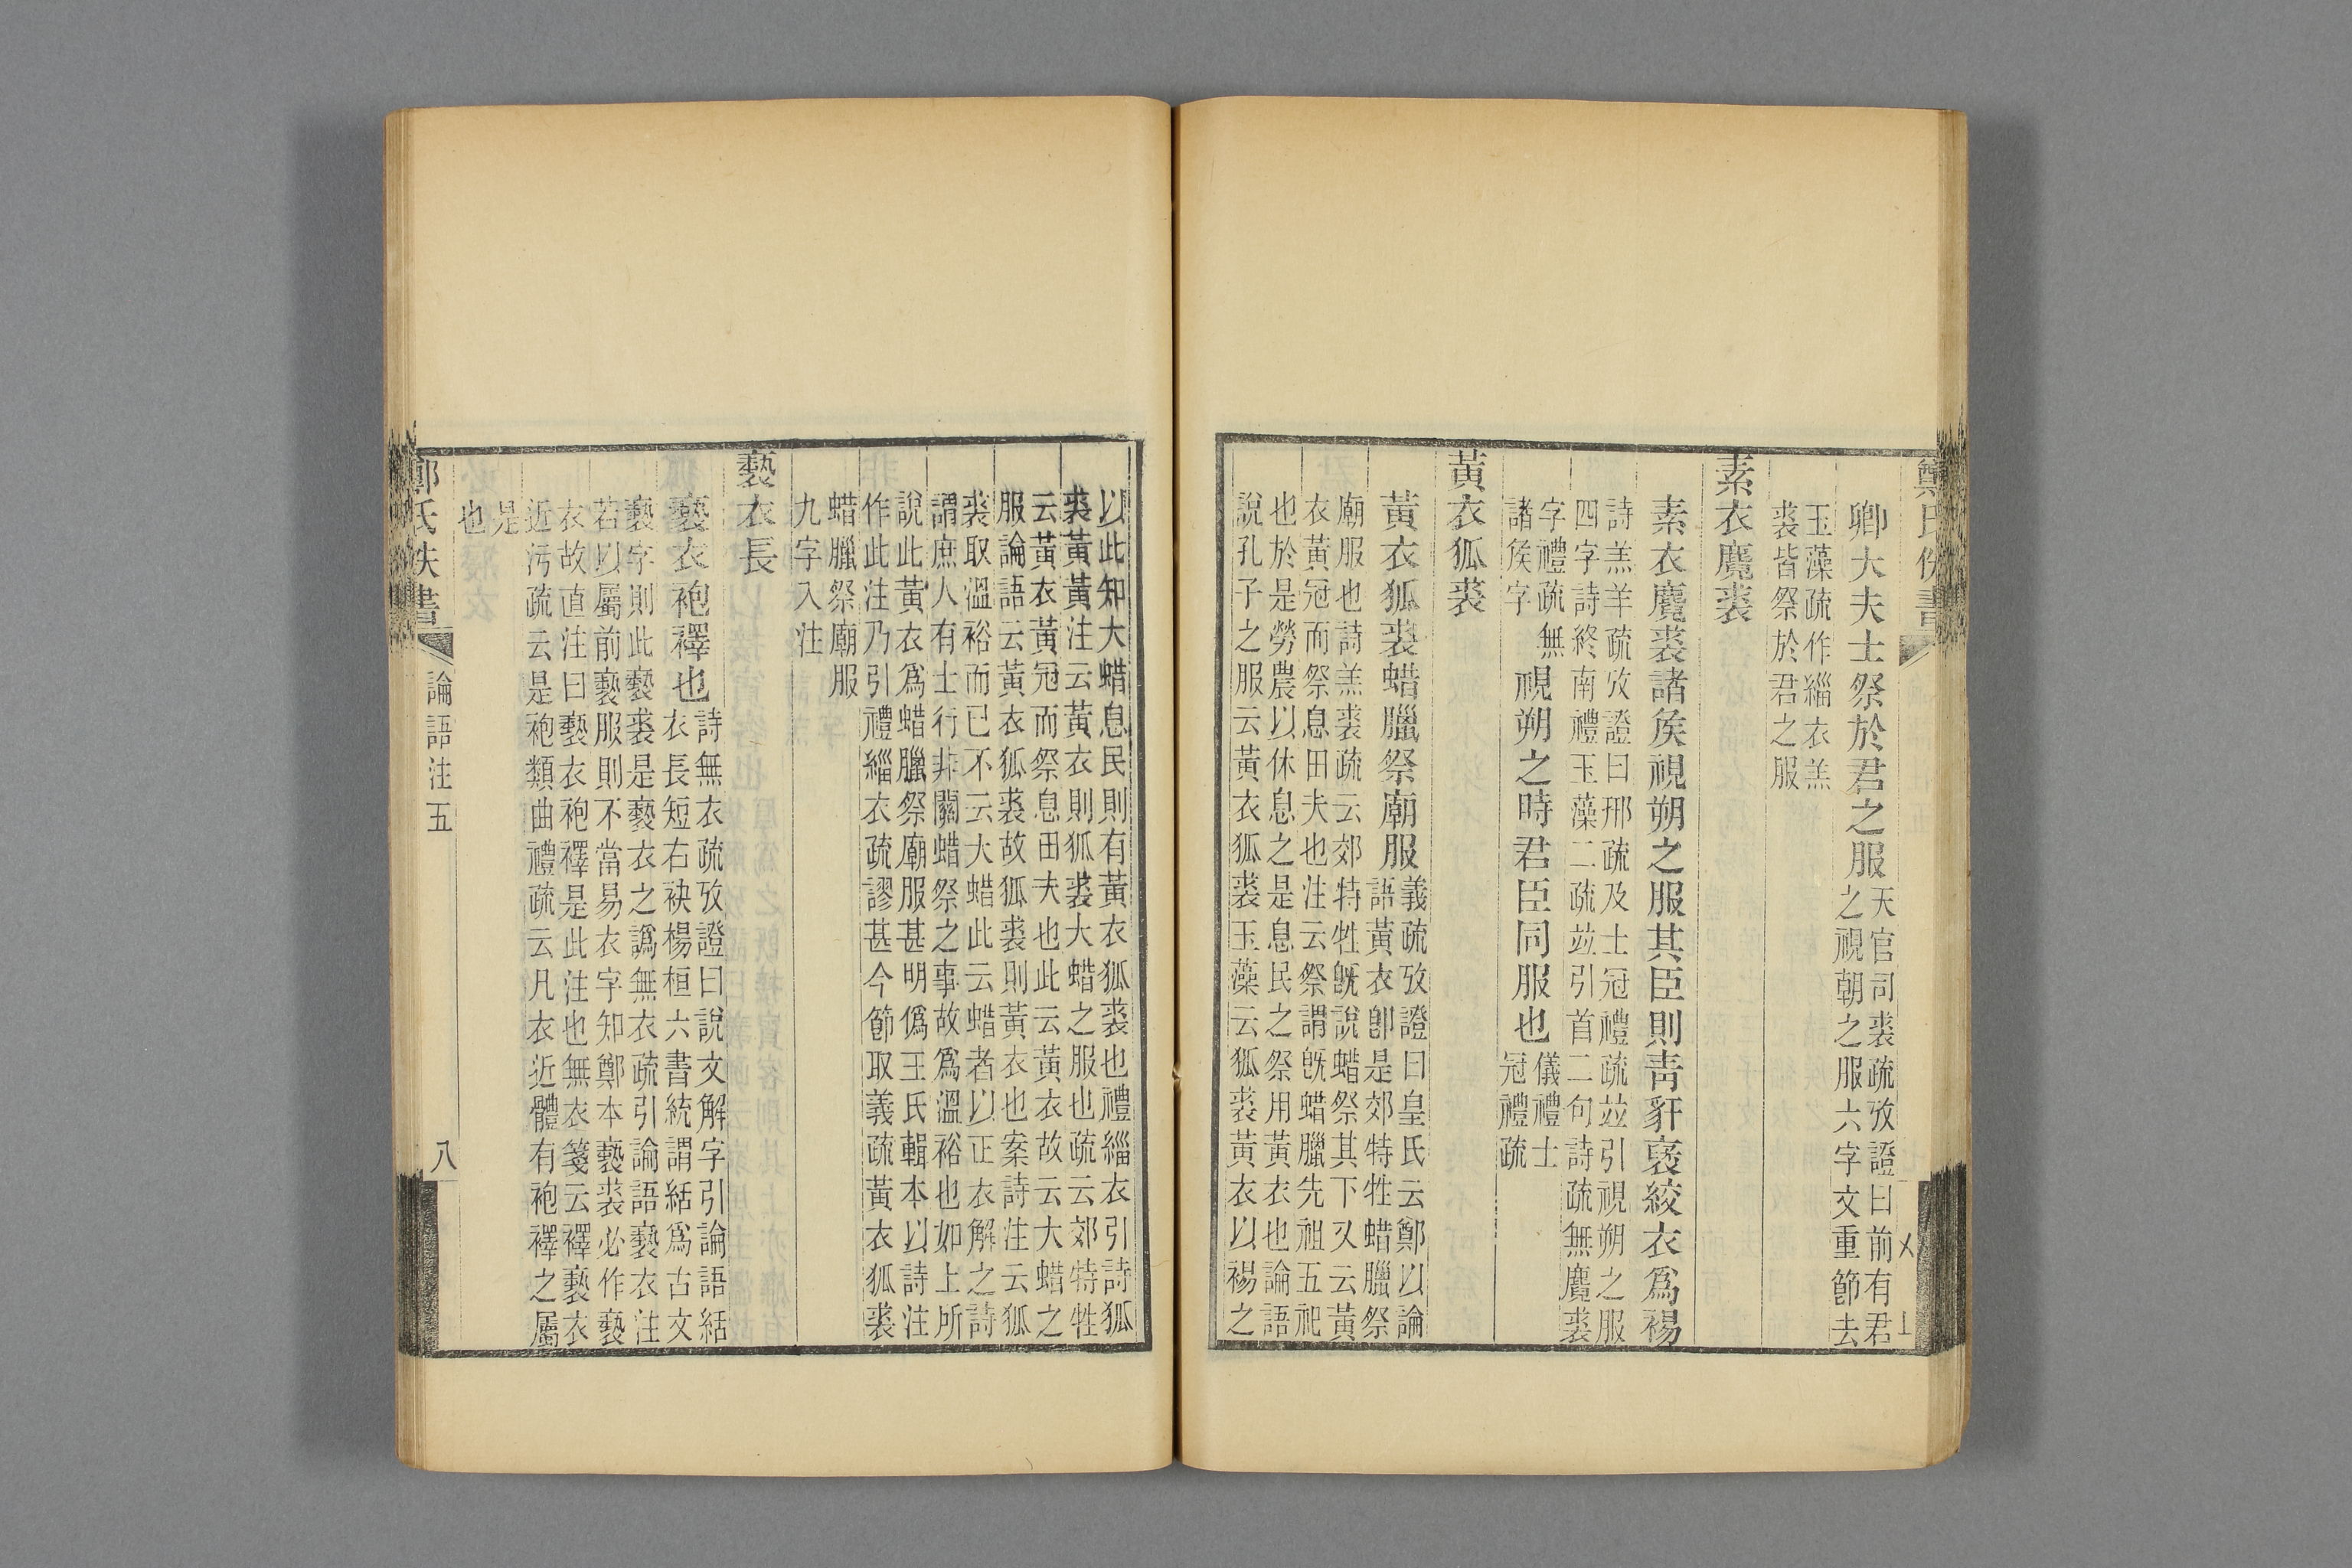 鄭氏佚書
卿大夫士祭於君之服天官司裘疏攷證曰前有君
之視朝之服六字文重節去
玉藻疏作緇衣羔
裘皆祭於君之服
素衣麑裘
素衣麑裘諸矦視朔之服其臣則靑豻褎絞衣爲裼
詩羔羊疏攷證曰邢疏及士冠禮疏竝引視朔之服
四字詩終南禮玉藻二疏竝引首二句詩疏無麑裘
字禮疏無
諸矦字
視朔之時君臣同服也儀禮士
冠禮疏
黃衣狐裘
黃衣狐裘蜡臘祭廟服義疏攷證曰皇氏云鄭以論
語黃衣卽是郊特牲蜡臘祭
廟服也詩羔裘疏云郊特牲旣說蜡祭其下又云黃
衣黃冠而祭息田夫也注云祭謂旣蜡臘先祖五祀
也於是勞農以休息之是息民之祭用黃衣也論語
說孔子之服云黃衣狐裘玉藻云狐裘黃衣以裼之
以此知大蜡息民則有黃衣狐裘也禮緇衣引詩狐
裘黃黃注云黃衣則狐裘大蜡之服也疏云郊特牲
云黃衣黃冠而祭息田夫也此云黃衣故云大蜡之
服論語云黃衣狐裘故狐裘則黃衣也案詩注云狐
裘取溫裕而已不云大蜡此云蜡者以正衣解之詩
謂庶人有士行非關蜡祭之事故爲溫裕也如上所
說此黃衣爲蜡臘祭廟服甚明僞王氏輯本以詩注
作此注乃引禮緇衣疏謬甚今節取義疏黃衣狐裘
蜡臘祭廟服
九字入注
褻衣長
褻衣袍襗也詩無衣疏攷證曰說文解字引論語絬
衣長短右袂楊桓六書統謂絬爲古文
褻字則此褻裘是褻衣之譌無衣疏引論語褻衣注
若以屬前褻服則不當易衣字知鄭本褻裘必作褻
衣故直注曰褻衣袍襗是此注也無衣箋云襗褻衣
近污疏云是袍類曲禮疏云凡衣近體有袍襗之屬
是
也
鄭氏佚書
論語注五
八